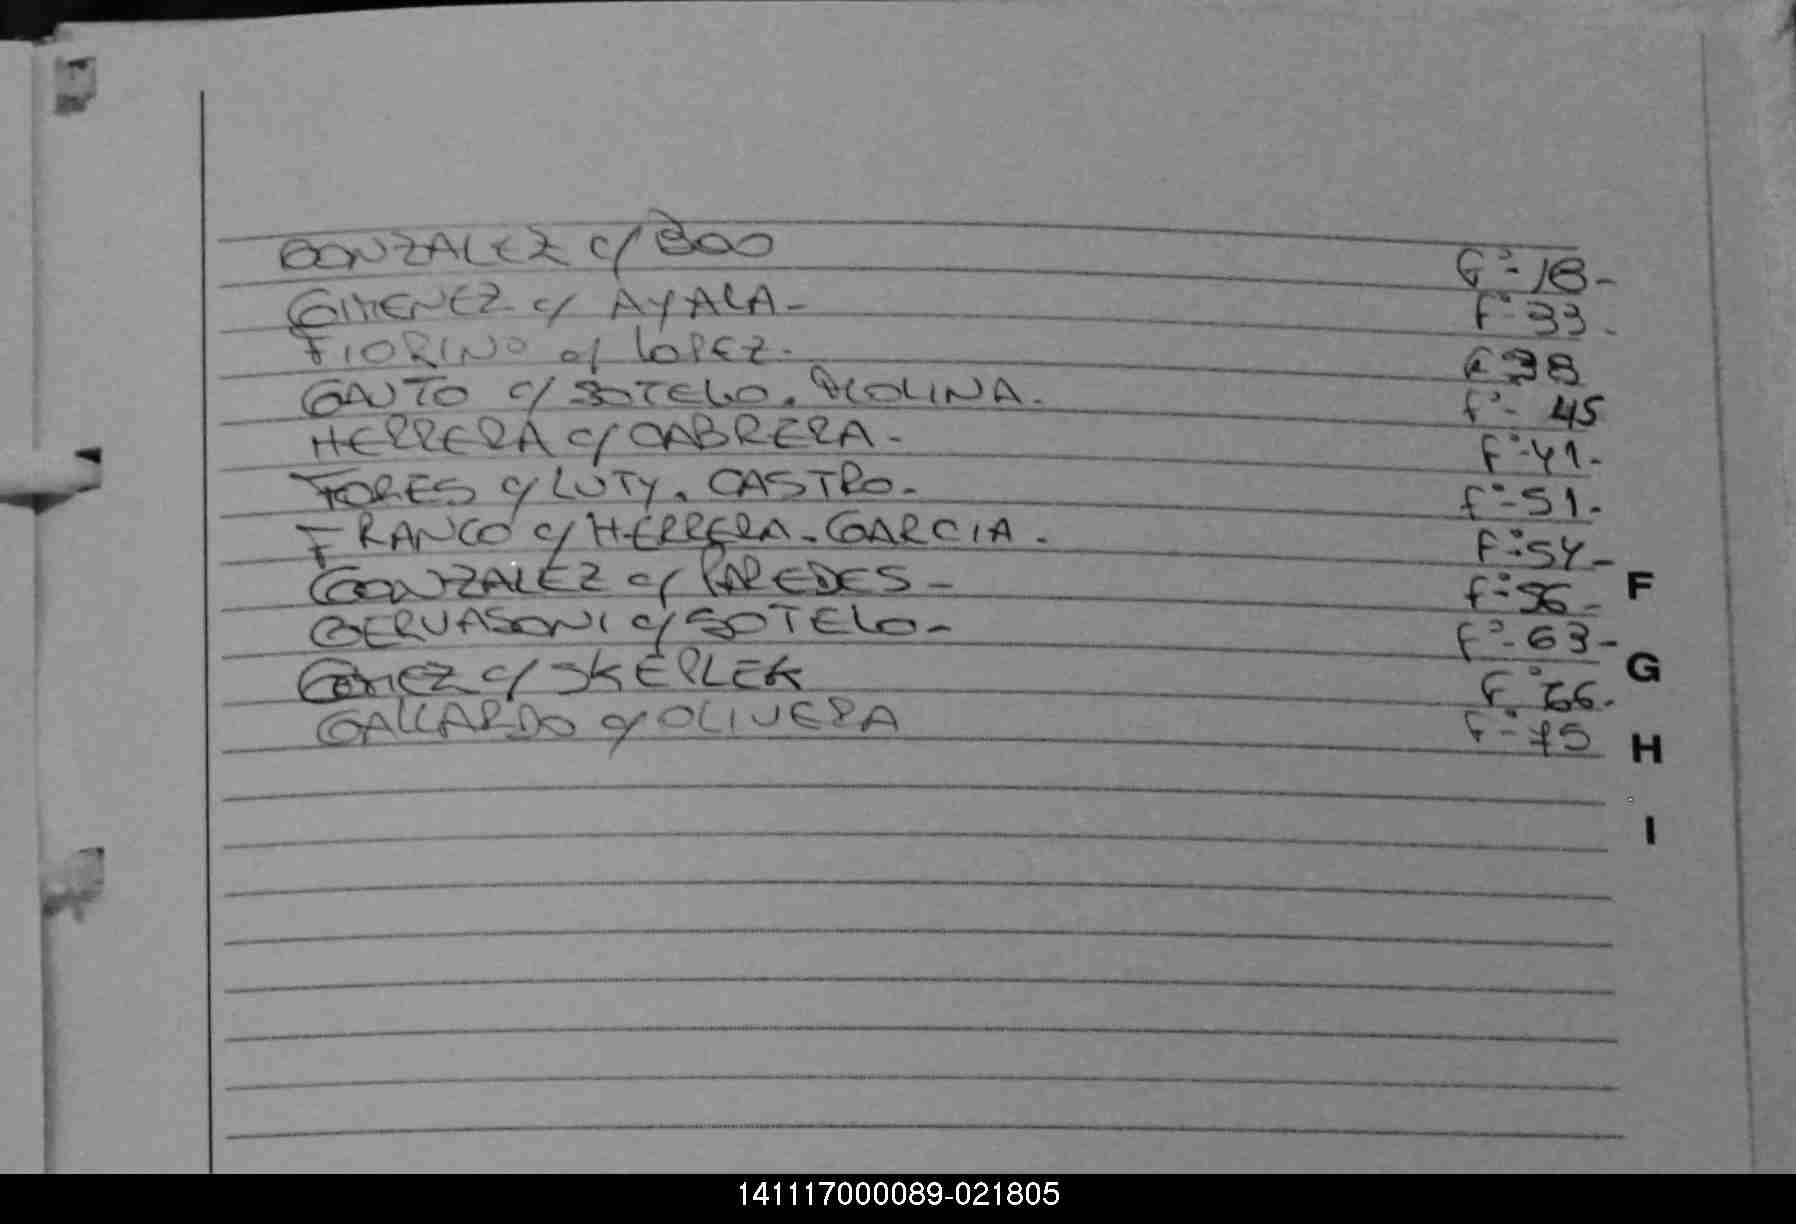 GONZALEZ c/ BOO F°- 18-
GIMENEZ c/ AYALA- F°- 33-
FIORINO c/ LOPEZ- F° 38
GAUTO c/ SOTELO. MOLINA. F°- 45
HERRERA c/ CABRERA- F°- 41-
FORES c/ LUTY. CASTRO- F°- 51-
FRANCO c/ HERRERA-GARCIA. F°- 54-
GONZALEZ c/ PAREDES- F°- 56-
GERVASONI c/ SOTELO- F°- 63-
GOMEZ c/ SKERLEK F° 66-
GALLARDO c/ OLIVERA F°- 75
F
G
H
I
141117000089-021805